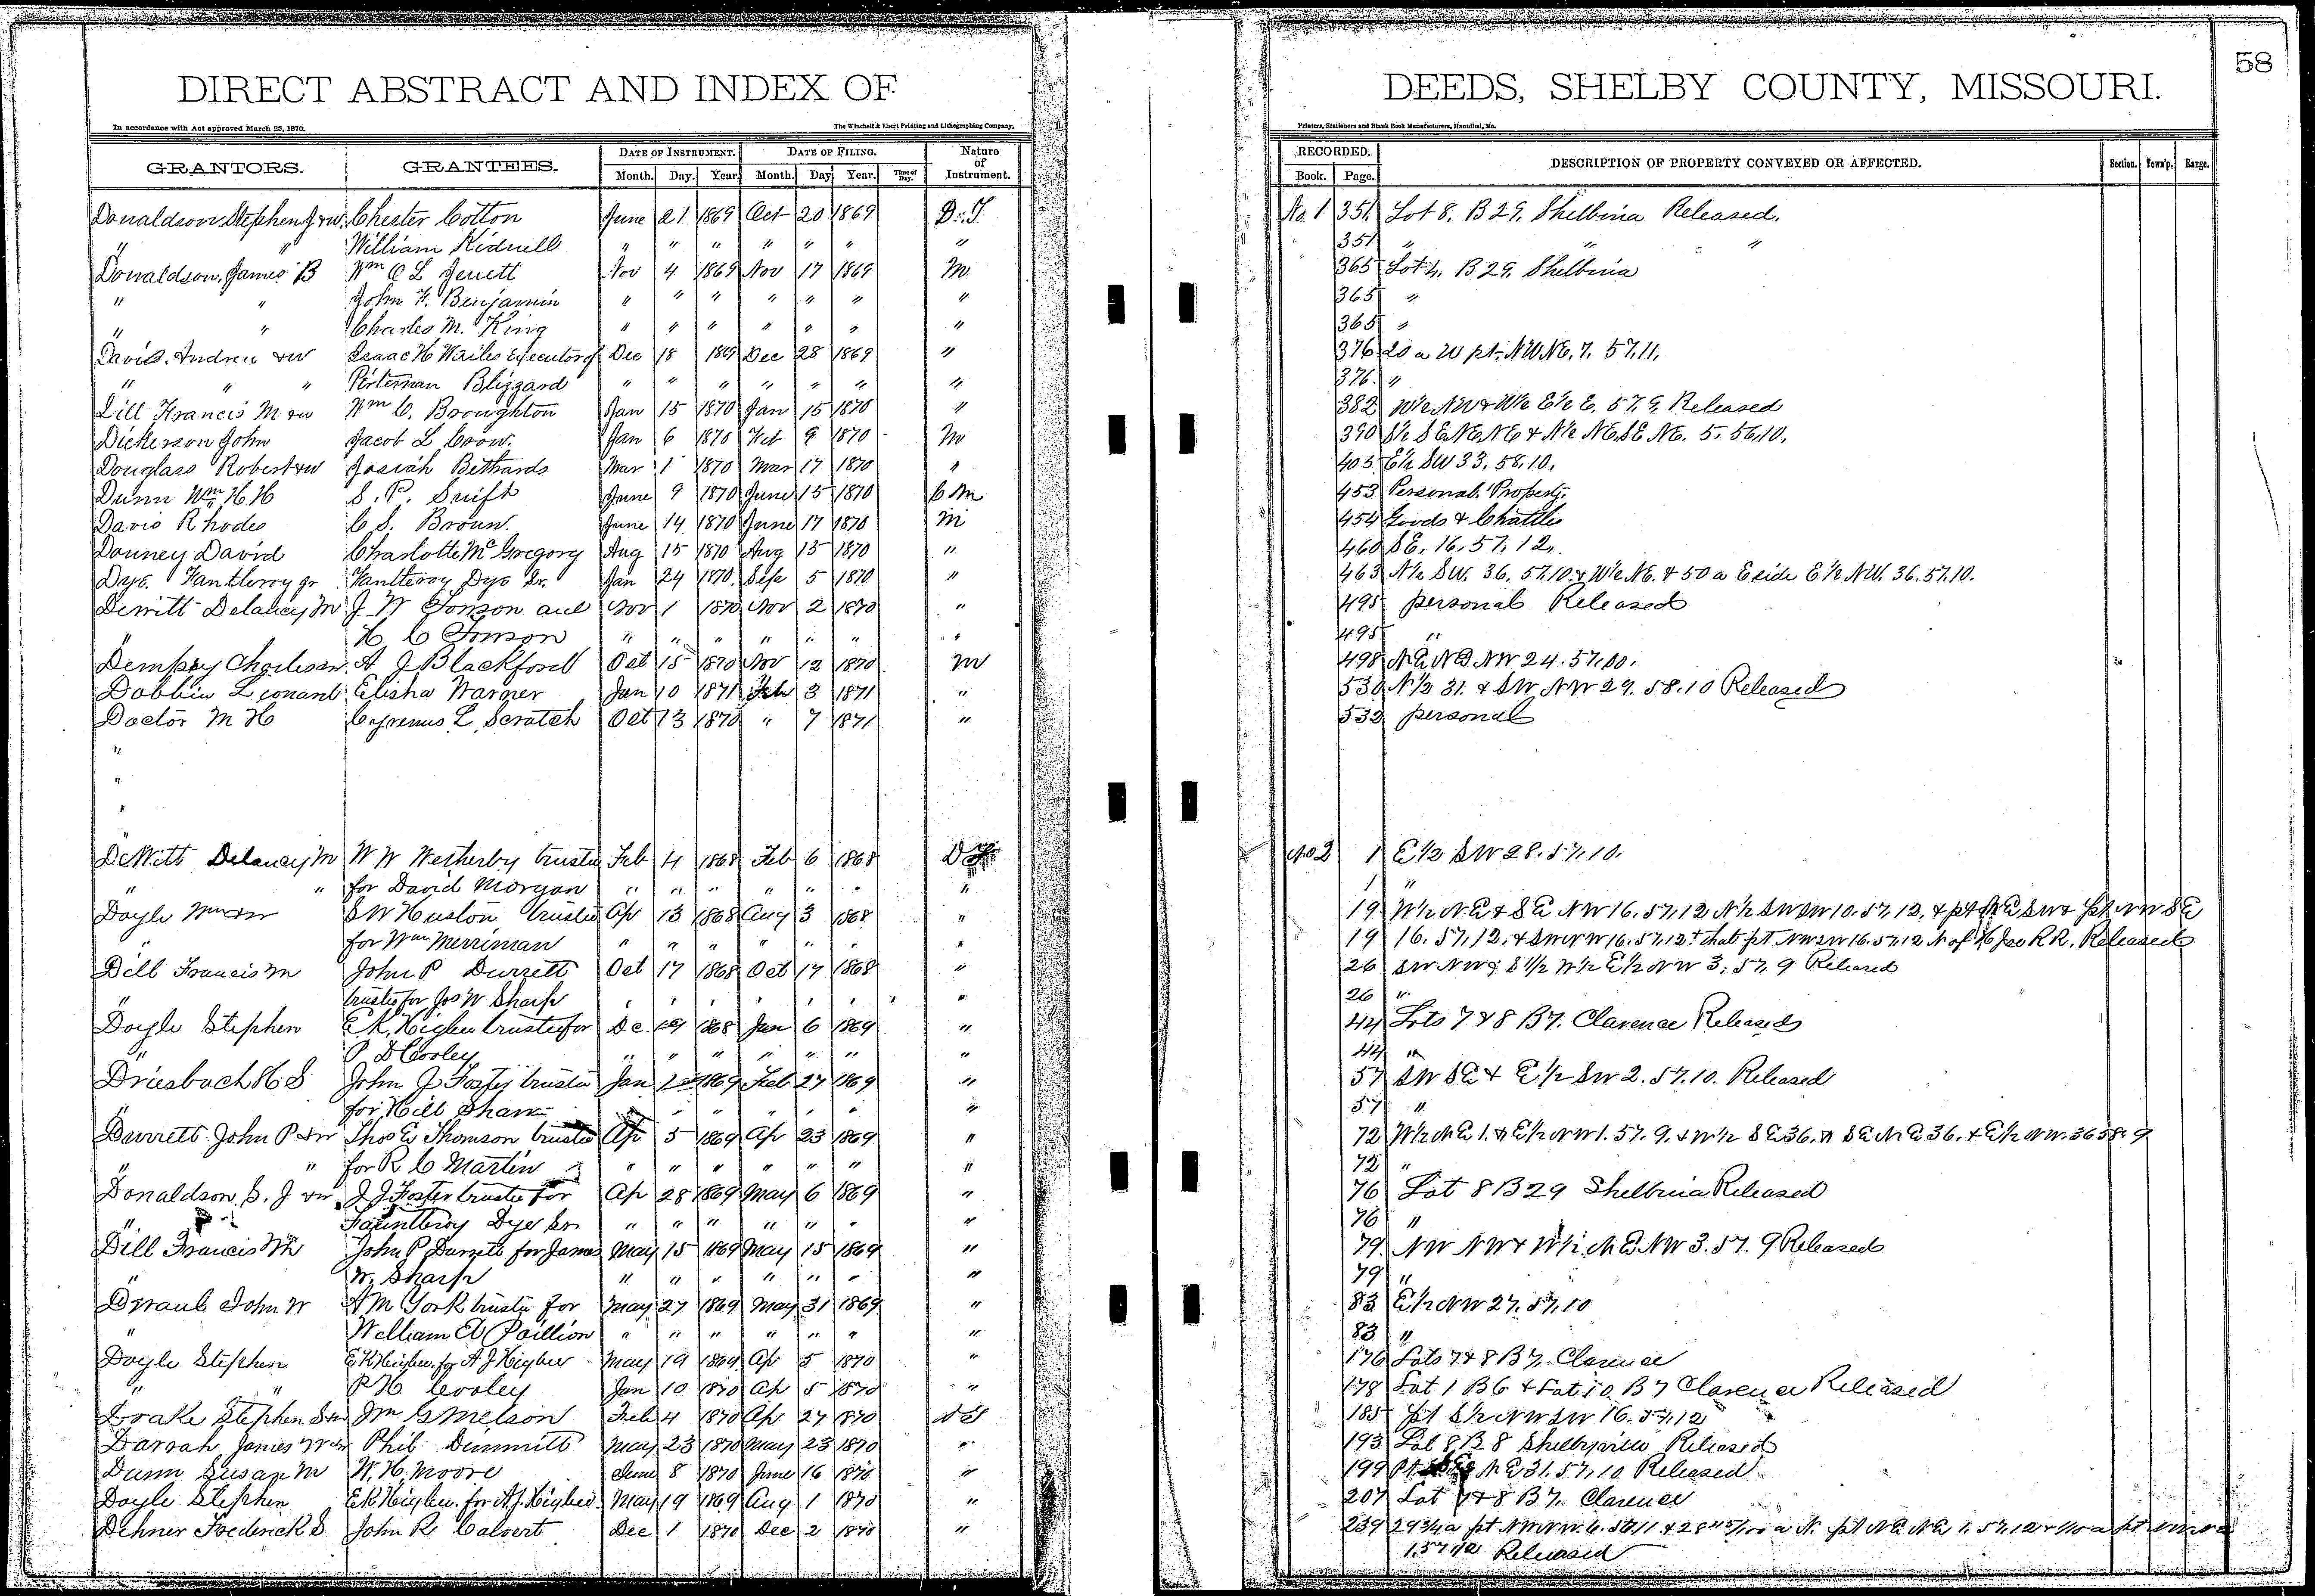 58
DIRECT ABSTRACT AND INDEX OF DEEDS, SHELBY COUNTY, MISSOURI.
In accordance with Act approved March 25, 1870. The Winchell & Ebert Printing and Lithographing Company, Printers, Stationers and Blank Book Manufacturers, Hannibal, Mo.
GRANTORS. GRANTEES. DATE OF INSTRUMENT. DATE OF FILING. Nature of Instrument. RECORDED. DESCRIPTION OF PROPERTY CONVEYED OR AFFECTED. Section. Town'p. Range.
Month. Day. Year. Month. Day. Year. Time of Day. Book. Page.
Donaldson Stephen J & w. Chester Cotton June 21 1869 Oct 20 1869 D.T. No. 1 351 Lot 8, B 29, Shelbina Released.
" " William Kidwell " " " " " " " 351 " " "
Donaldson, James B Wm O L Jewett Nov 4 1869 Nov 17 1869 M. 365 Lot 4, B 29, Shelbina
" " John F. Benjamin " " " " " " " 365 "
" " Charles M. King " " " " " " " 365 "
Davis Andrew & W Isaac H Wailes Executor of Dec 18 1869 Dec 28 1869 " 376 20 a W pt. NW NE. 7. 57. 11.
" " " Perteman Blizzard " " " " " " " 376. "
Dill Francis M & w Wm C. Broughton Jan 15 1870 Jan 15 1870 " 382 Released
Dickerson John Jacob L Crow. Jan 6 1870 Feb 9 1870 M 390 S½ SE NE NE & N½ NE SE NE. 5. 56. 10.
Douglass Robert & w Josiah Bethards Mar 1 1870 Mar 17 1870 " 405 E½ SW 33. 58. 10.
Dunn Wm H H S. P. Swift June 9 1870 June 15 1870 C M 453 Personal Property.
Davis Rhodes C S. Brown. June 14 1870 June 17 1870 M 454 Goods & Chattles
Downey David Charlotte McGregory Aug 15 1870 Aug 15 1870 " 460 SE. 16. 57. 12.
Dye. Fantleroy jr Fantleroy Dye Sr. Jan 24 1870. Sep 5 1870 " 463 N½ SW. 36. 57. 10. & W½ NE. & 50 a E side E½ NW. 36. 57. 10.
Dewitt Delancy M J W Tonson and Nov 1 1870 Nov 2 1870 " 495 personal Released
" H C Tonson " " " " " " " 495 "
Dempsy Charles A J Blackford Oct 15 1870 Nov 12 1870 M 498 NW 24. 57. 10.
Dobbin Leonard Elisha Warner Jan 10 1871 Feb 3 1871 " 530 N½ 31. & SW NW 29. 58. 10 Released
Doctor M H Cyrenus L Scratch Oct 13 1870 " 7 1871 " 532 personal
"
"
"
DeWitt Delancy M W W Wetherby trustee Feb 4 1868 Feb 6 1868 DT No 2 1 E½ SW 28. 57. 10.
" " for David Morgan " " " " " " " 1 "
Doyle Wm & w S W Huston trustee Ap 13 1868 Aug 3 1868 " 19 W½ NE & SE NW 16. 57. 12 N½ SW SW 10. 57. 12. & pt NE SW & pt NW SE
" for Wm Merriman " " " " " " " 19 16. 57. 12. & SW NW 16. 57. 12 & that pt NW SW 16. 57. 12 N of H & Joe R R. Released
Dill Francis M John P Durrett Oct 17 1868 Oct 17 1868 " 26 SW NW & S½ W½ E½ NW 3. 57. 9 Released
" trustee for Jos W Sharp " " " " " " " 26 "
Doyle Stephen E K. Higbee trustee for Dec 29 1868 Jan 6 1869 " 44 Lots 7 & 8 B 7. Clarence Released
" P D Cooley " " " " " " " 44 "
Driesbach H S John J Foster trustee Jan 1869 Feb 27 1869 " 57 SW SE & E½ SW 2. 57. 10. Released
" for Hill Shaw " " " " " " 57 "
Durrett John P & w Thos E Thomson trustee Ap 5 1869 Ap 23 1869 " 72 W½ NE 1. & E½ NW 1. 57. 9. & W½ SE 36. & SE NE 36. & E½ NW. 36 58. 9
" " for R C Martin " " " " " " " 72 "
Donaldson S. J & w J J Foster trustee for Ap 28 1869 May 6 1869 " 76 Lot 8 B 29 Shelbina Released
" Fauntleroy Dye Sr. " " " " " " " 76 "
Dill Francis M John P Durrett for James May 15 1869 May 15 1869 " 79 NW NW & W½ NE NW 3. 57. 9 Released
" W. Sharp " " " " " " " 79 "
John W A M York trustee for May 27 1869 May 31 1869 " 83 E½ NW 27. 57. 10
" William A Paillion " " " " " " " 83 "
Doyle Stephen E K Higbee for A J Higbee May 19 1869 Ap 5 1870 " 176 Lots 7 & 8 B 7. Clarence
" " P H Cooley Jan 10 1870 Ap 5 1870 " 178 Lot 1 B 6 & Lot 10 B 7 Clarence Released
Drake Stephen S & w Jm G Melson Feb 4 1870 Ap 27 1870 185 pt S½ NW SW 16. 57. 12
Darrah James W & w Phil Dimmitt May 23 1870 May 23 1870 " 193 Lot 8 B 8 Shelbyville Released
Dunn Susan M W. H. Moore June 8 1870 June 16 1870 " 199 Pt NE 31. 57. 10 Released
Doyle Stephen E K Higbee for A. J. Higbee May 19 1869 Aug 1 1870 " 207 Lot 7 & 8 B 7. Clarence
Dehner Frederick S John R Calvert Dec 1 1870 Dec 2 1870 " 239 29¾ a pt NW NW. 6. 57. 11 & a N. pt NE NE 1. 57. 12
1. 57 12 Released